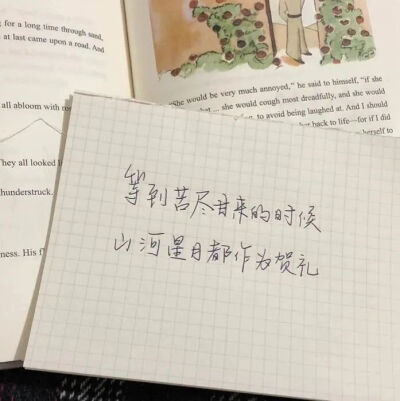 g for a long time through sand,
at last came upon a road. And
all abloom with
They all looked
hunderstruck.
ness. His
"She would be very much annoyed," he said to himself, "if she
she would cough most dreadfully, and she would
to avoid being laughed at. And I should
back to life—for if I did
herself to
等到苦尽甘来的时候
山河星月都作为贺礼